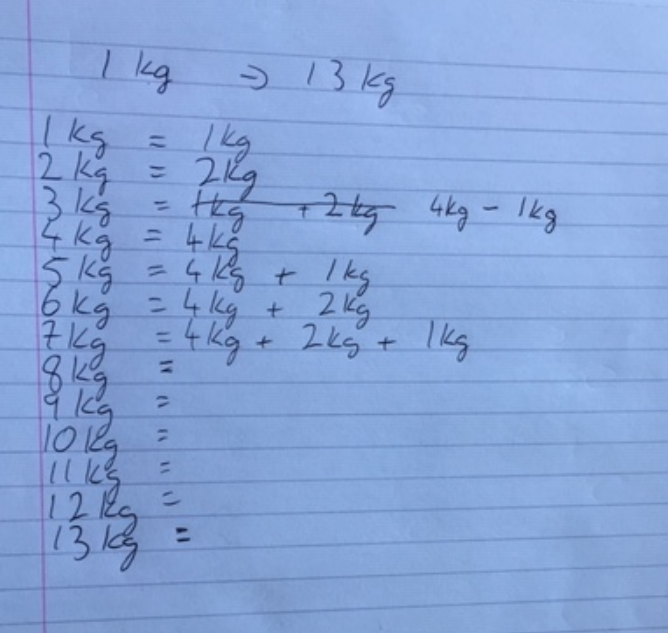 1 kg → 13 kg
1 kg = 1 kg
2 kg = 2 kg
3 kg = 1 kg + 2 kg 4 kg - 1 kg
4 kg = 4 kg
5 kg = 4 kg + 1 kg
6 kg = 4 kg + 2 kg
7 kg = 4 kg + 2 kg + 1 kg
8 kg =
9 kg =
10 kg =
11 kg =
12 kg =
13 kg =